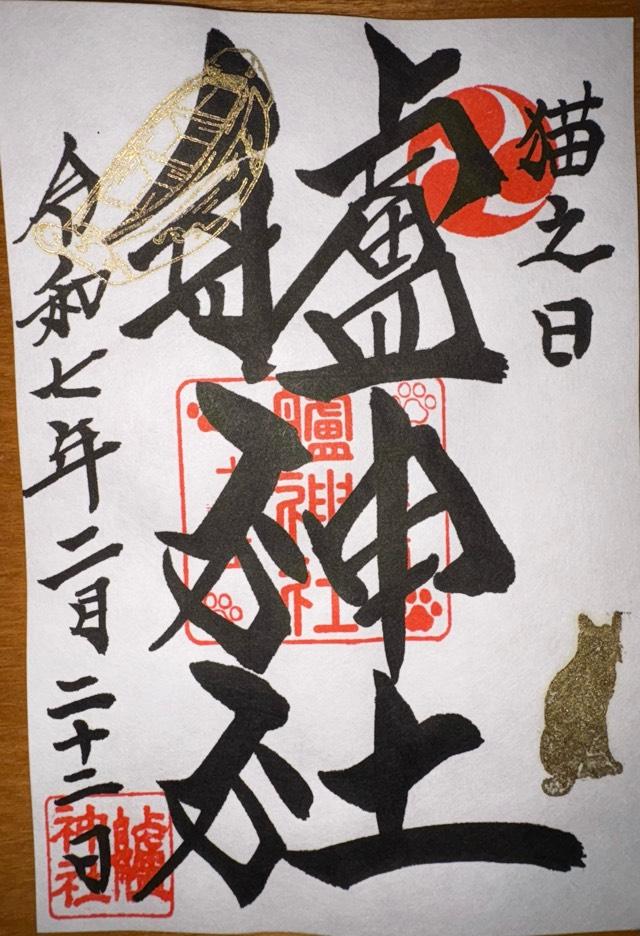 猫之日
艫神社
令和七年二月二十二日
艫神社
艫神社